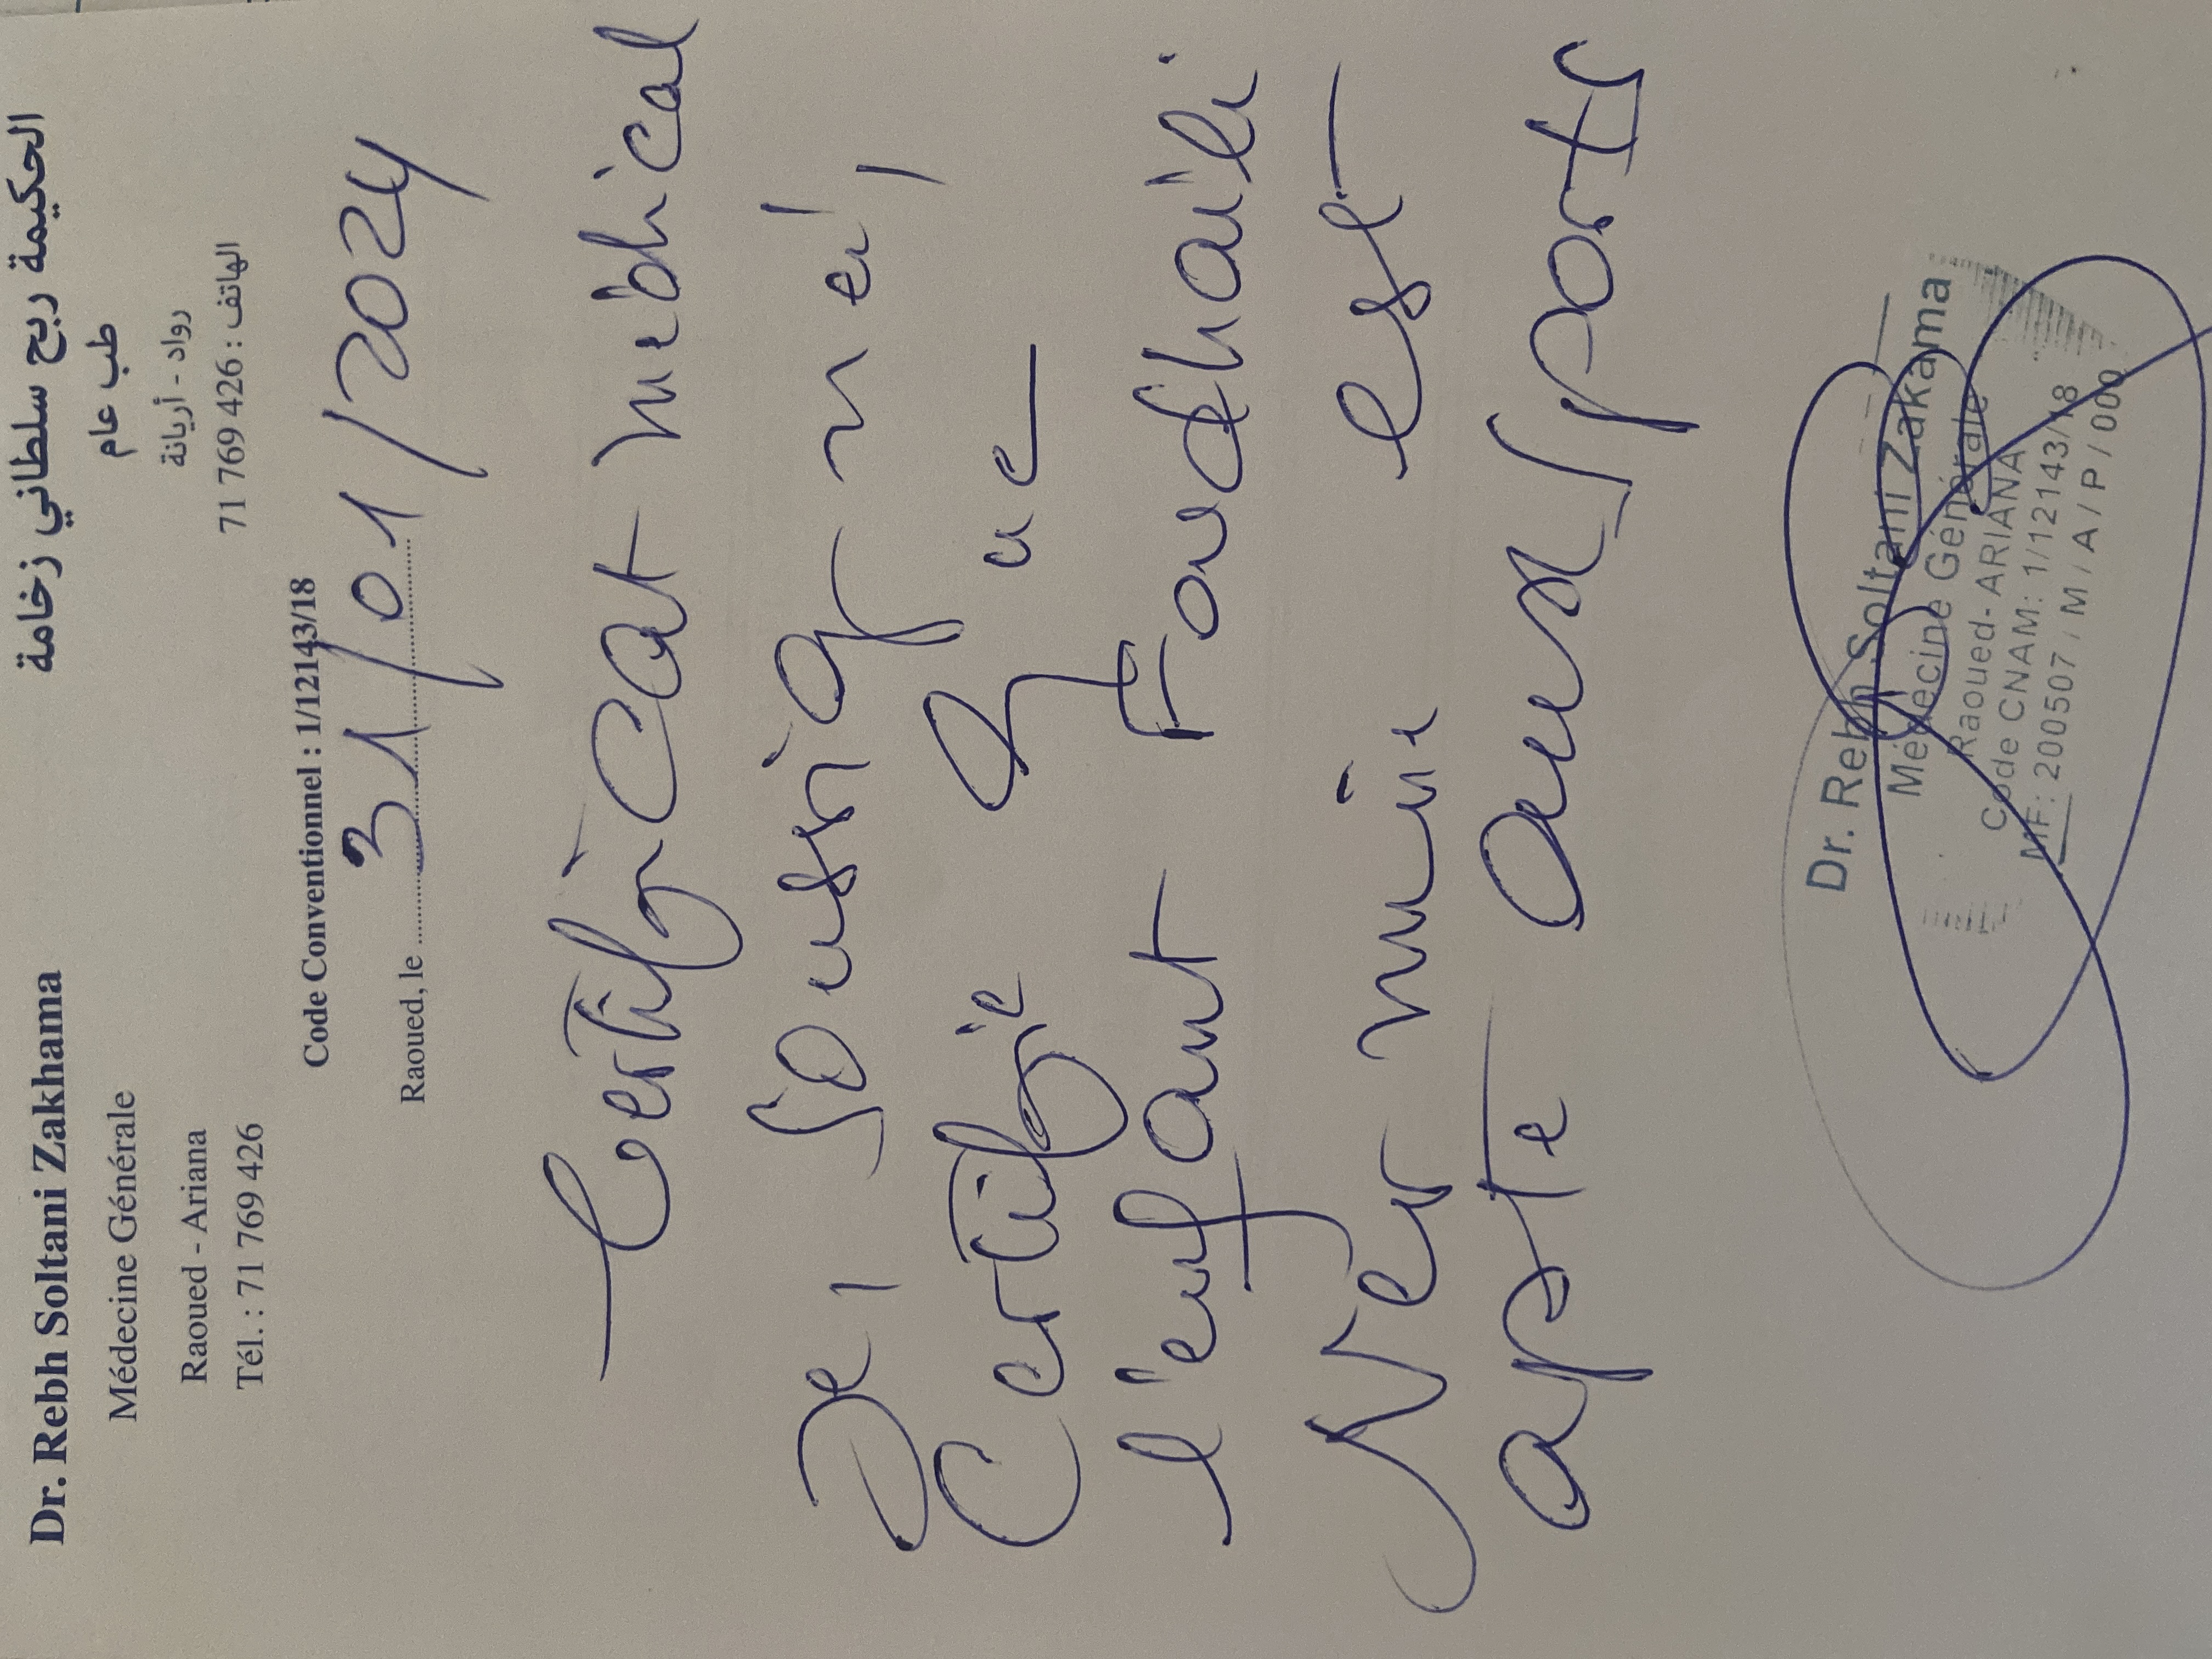 Dr. Rebh Soltani Zakhama
Médecine Générale
Raoued - Ariana
Tél. : 71 769 426
الحكيمة ربح سلطاني زخامة
طب عام
رواد - أريانة
الهاتف : 426 769 71
Code Conventionnel : 1/12143/18
Raoued, le 31/01/2024
Certificat médical
Je, soussigné,
Certifie que
l'enfant Foudhaili
Nermine est
apte aux sports
Dr. Rebh Soltani Zakama
Médecine Générale
Raoued- ARIANA
Code CNAM: 1/12143/18
MF: 200507 / M / A / P / 000